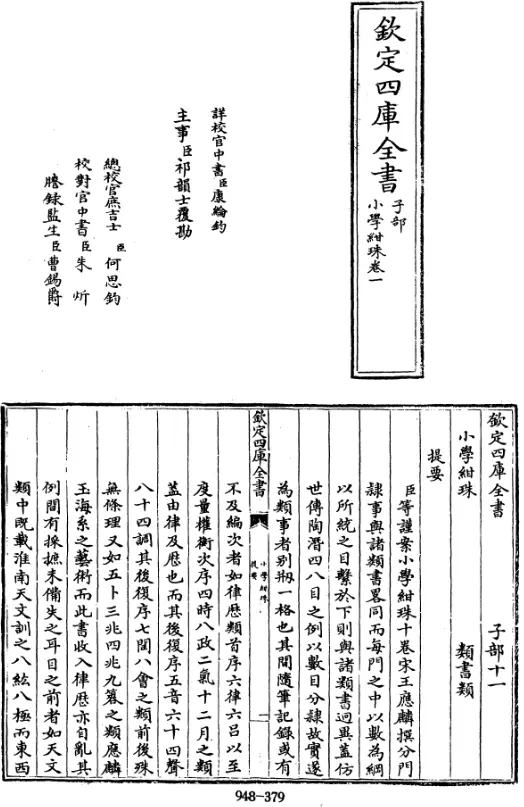 欽定四庫全書
子部
小學紺珠卷一
詳校官中書臣康綸鈞
主事臣祁韻士覆勘
總校官庶吉士臣何思鈞
校對官中書臣朱炘
謄錄監生臣曹錫爵
欽定四庫全書 子部十一
小學紺珠 類書類
提要
臣等謹案小學紺珠十卷宋王應麟撰分門
隷事與諸類書畧同而每門之中以數為綱
以所統之目繫於下則與諸類書迥異盖仿
世傳陶潛四八目之例以數目分隷故實遂
為類事者别剏一格也其間隨筆記錄或有
欽定四庫全書
小學紺珠
提要
一
不及編次者如律歴類首序六律六吕以至
度量權衡次序四時八政二氣十二月之類
盖由律及歴也而其後復序五音六十四聲
八十四調其後復序七閏八會之類前後殊
無條理又如五卜三兆四兆九簭之類應麟
玉海系之藝術而此書收入律歴亦自亂其
例間有採摭未備失之耳目之前者如天文
類中既載淮南天文訓之八紘八極而東西
948-379